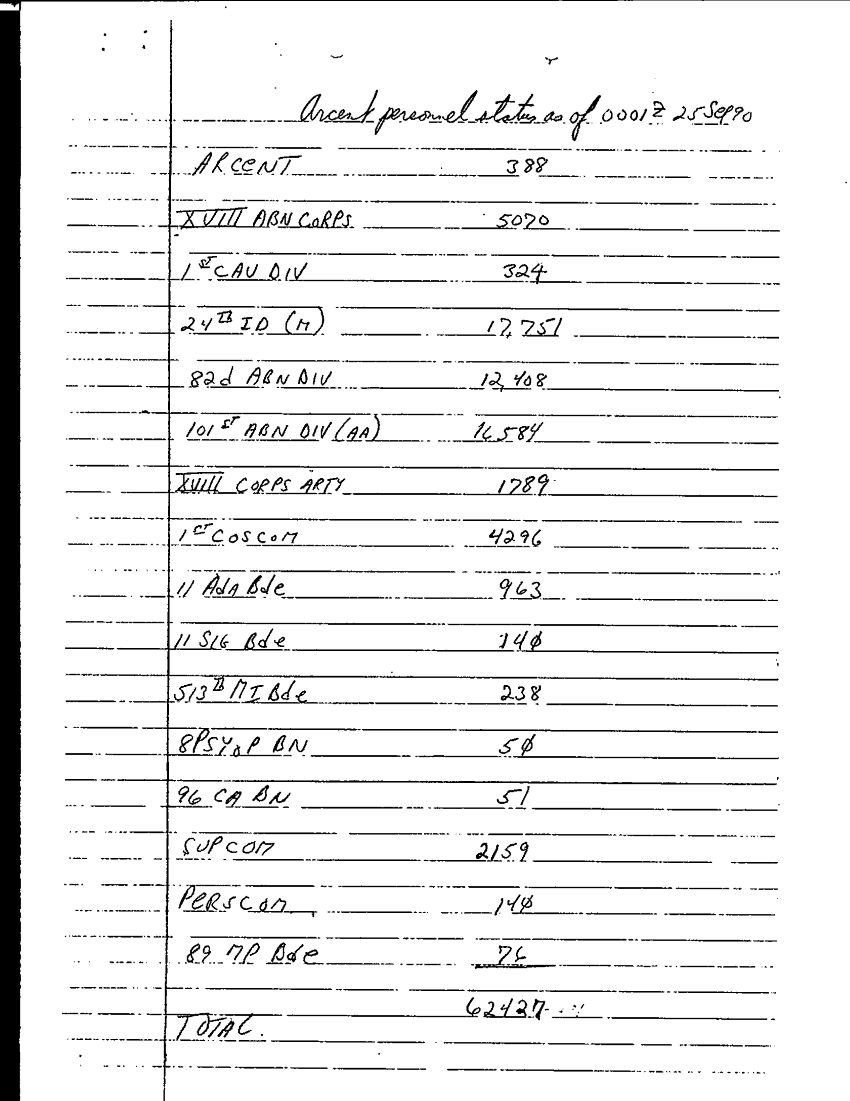 Arcent personnel status as of 0001Z 25 Sep 90
ARCENT 388
XVIII ABN CORPS 5070
1ST CAV DIV 324
24TH ID (M) 17,751
82d ABN DIV 12,408
101ST ABN DIV (AA) 16584
XVIII CORPS ARTY 1789
1ST COSCOM 4296
11 AdA Bde 963
11 SIG Bde 140
513TH MI Bde 238
8 PSYOP BN 50
96 CA BN 51
SUPCOM 2159
PERSCOM 140
89 MP Bde 76
62427
TOTAL.